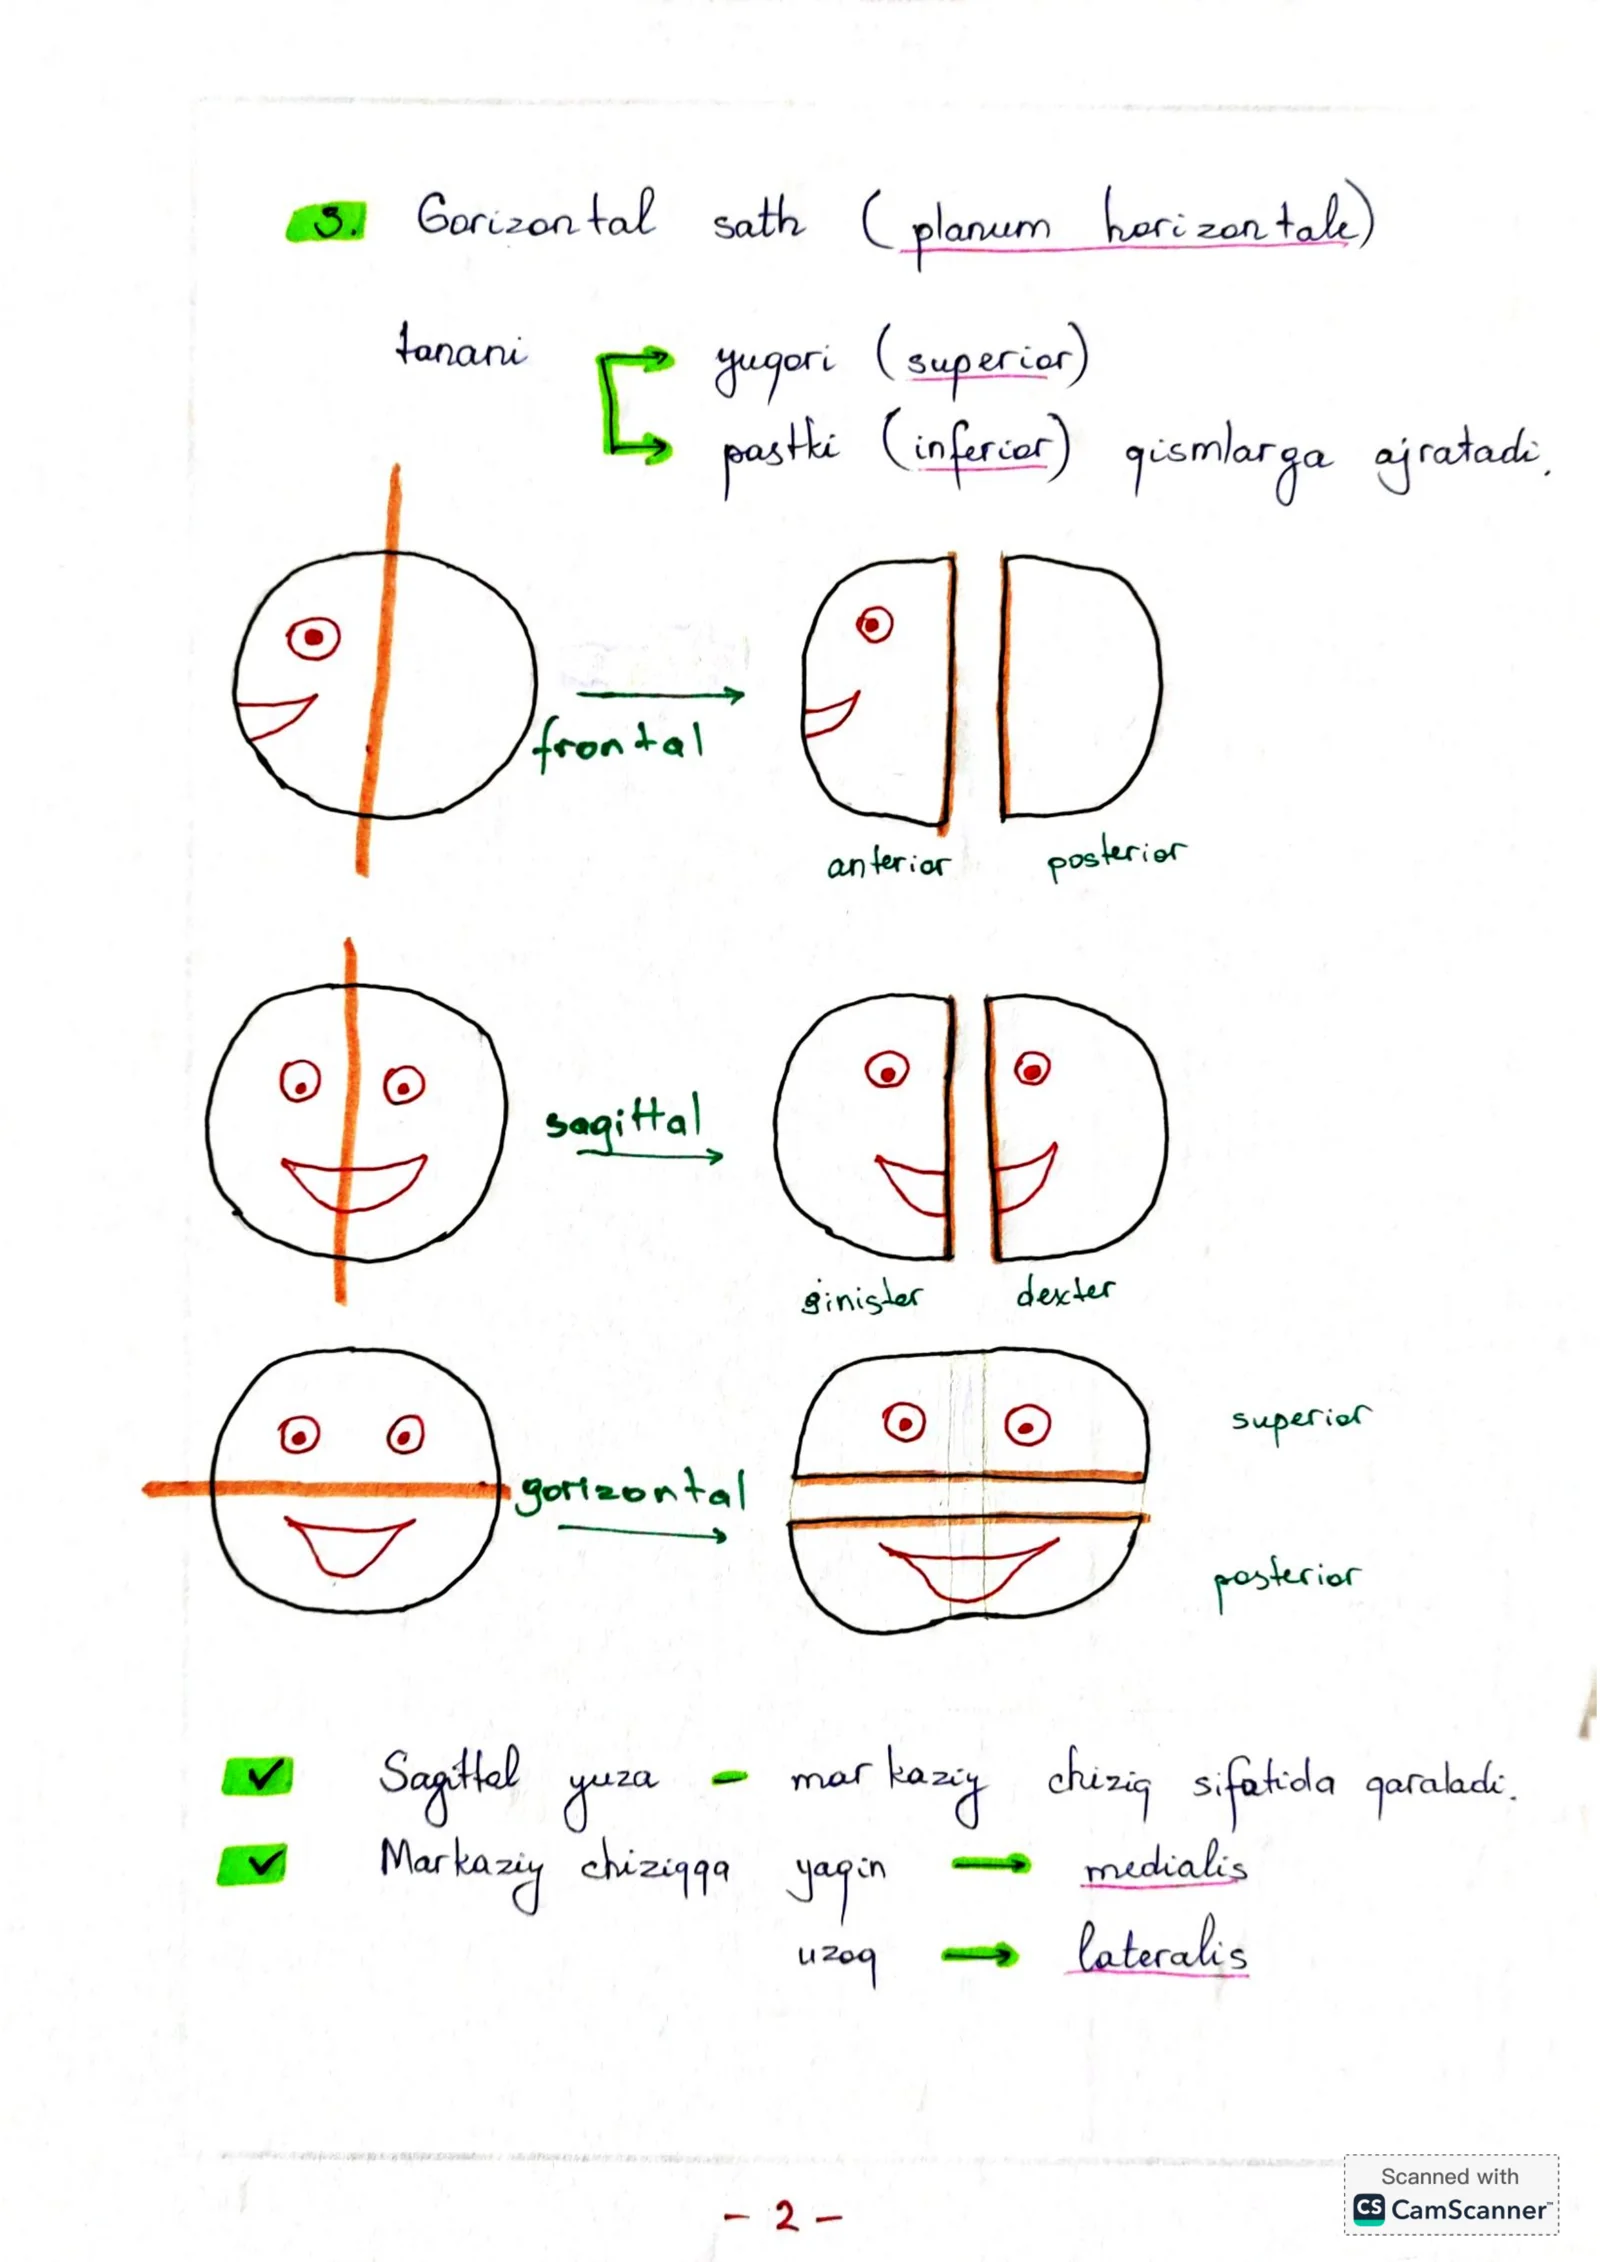 3. Gorizontal sath (planum horizontale)
tanani yuqori (superior)
pastki (inferior) qismlarga ajratadi.
frontal
anterior posterior
sagittal
sinister dexter
gorizontal
superior
posterior
✓ Sagittal yuza - markaziy chiziq sifatida qaraladi.
✓ Markaziy chiziqqa yaqin → medialis
uzoq → lateralis
- 2 -
Scanned with
CS CamScanner